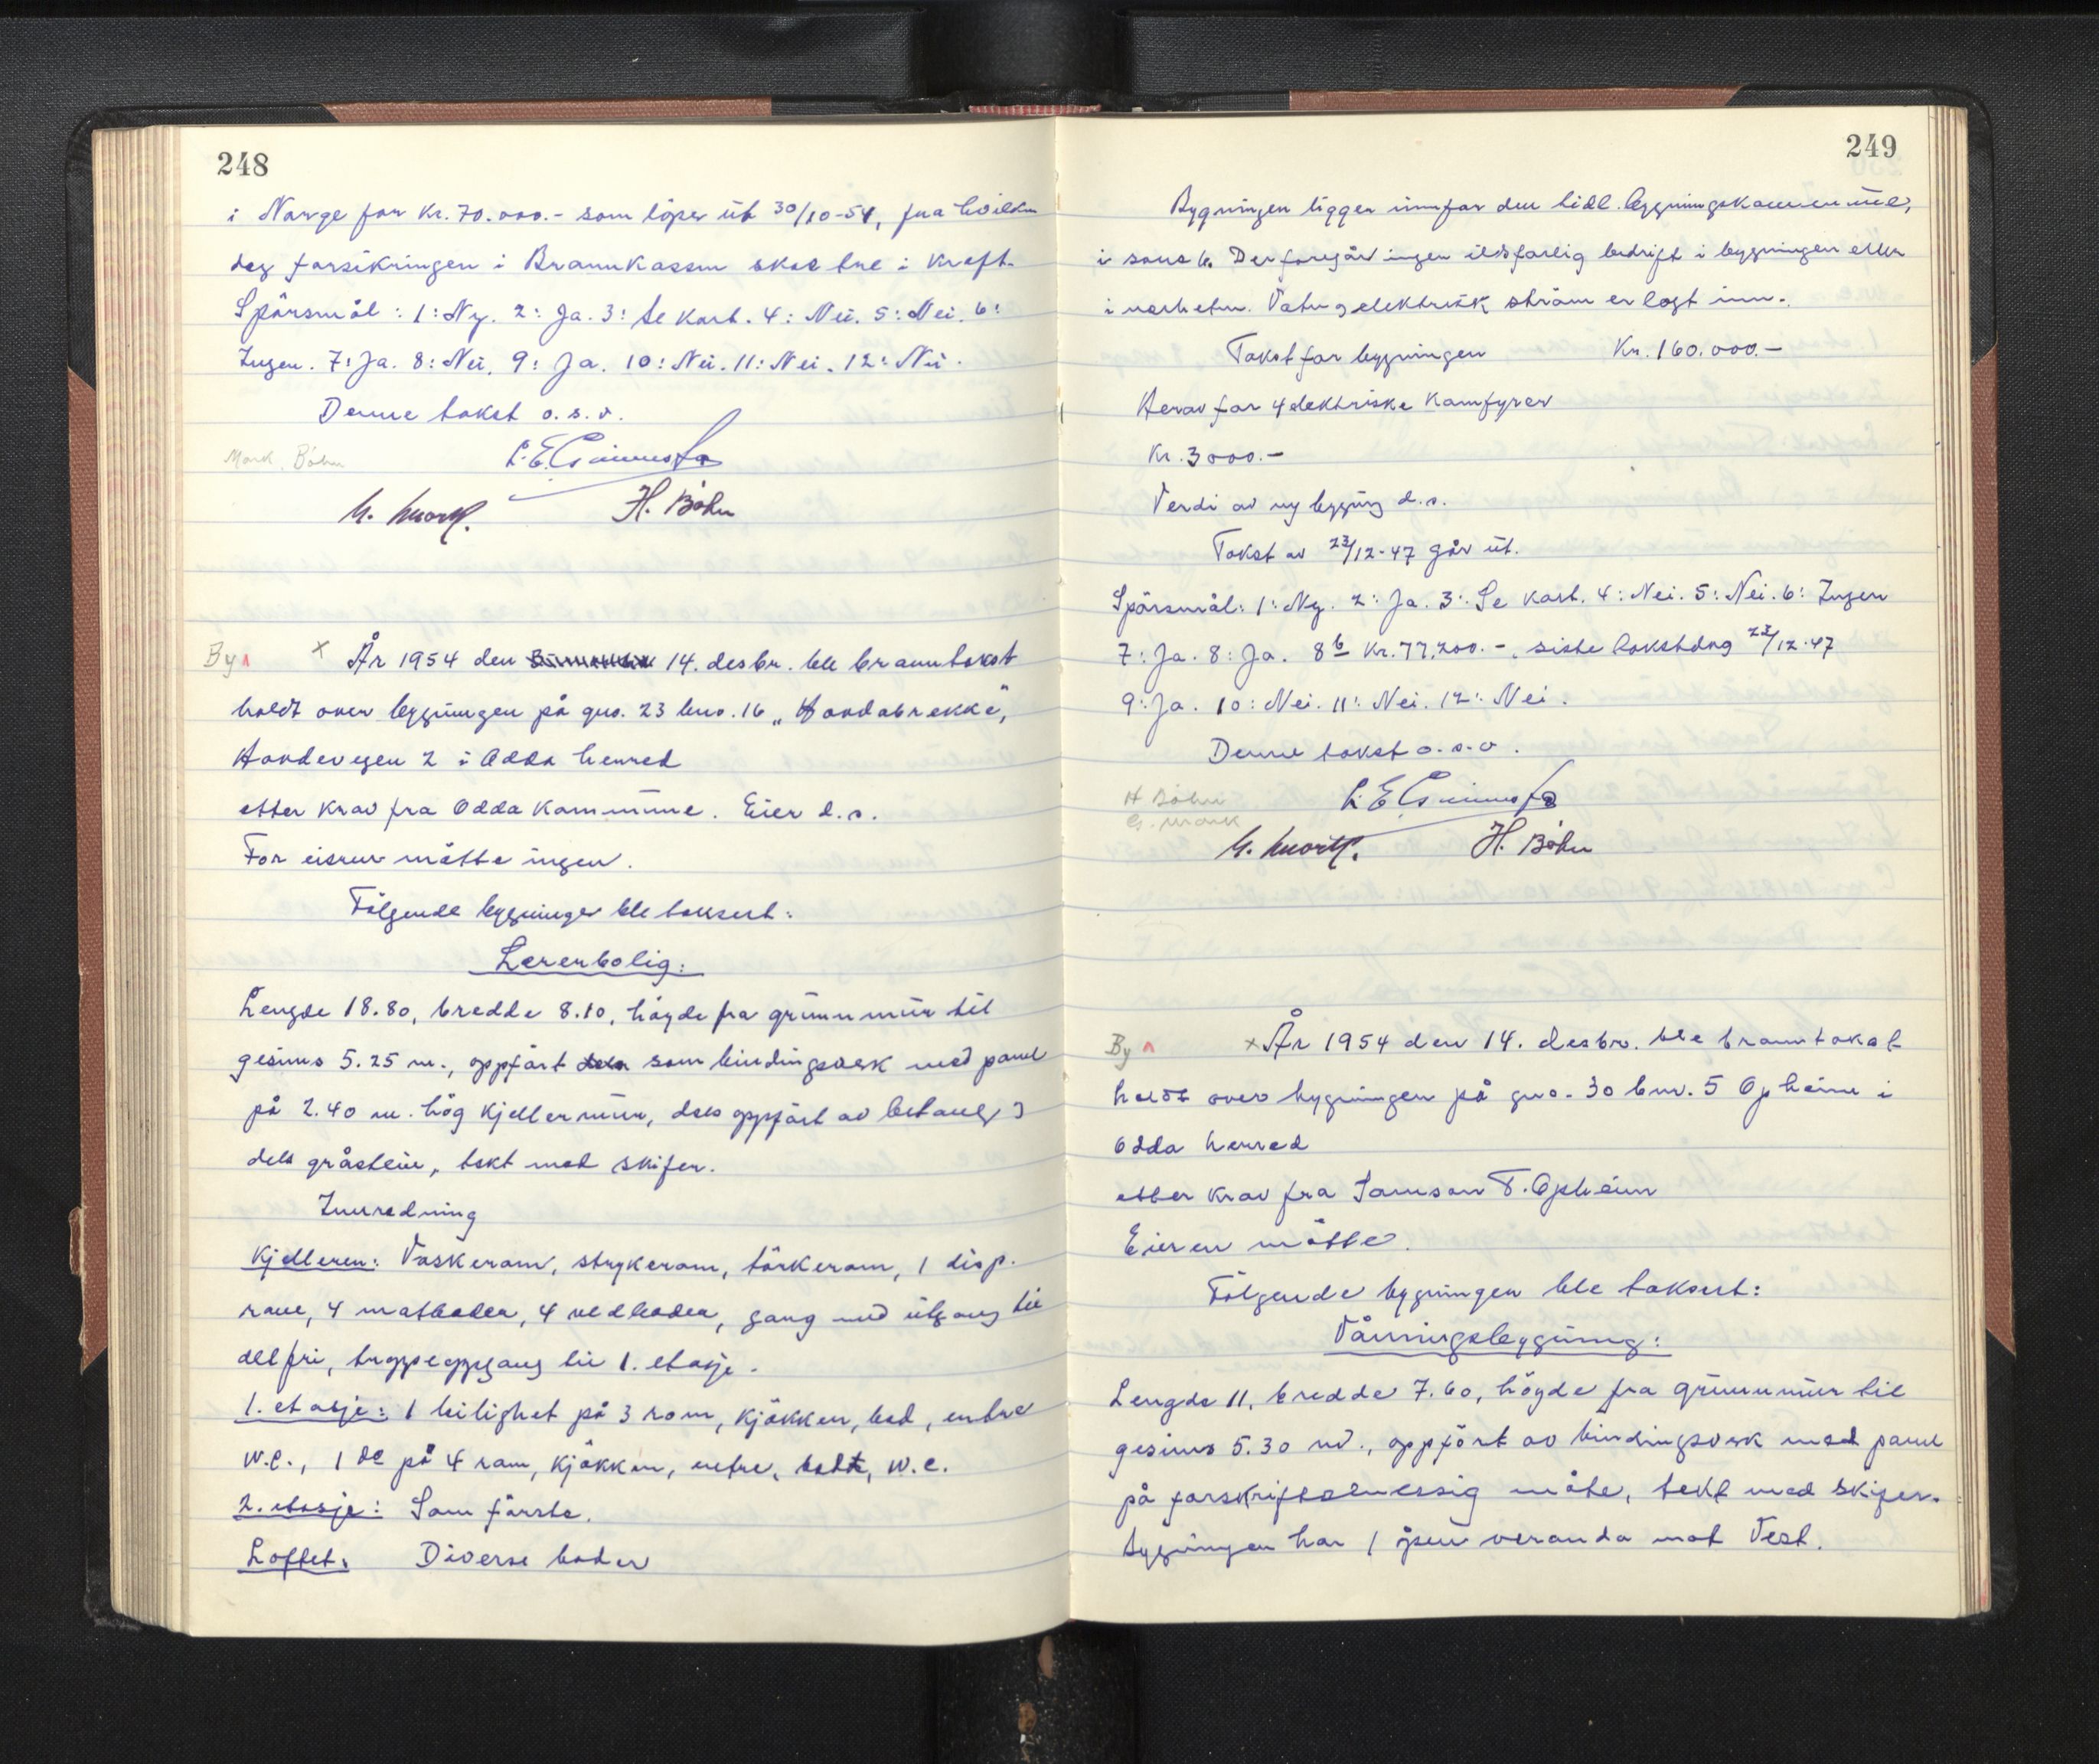 248
i Norge for kr. 70.000.- som löper ut 30/10-54, fra hvilken
dag forsikringen i Brannkassen skal tre i kraft.
Spörsmål: 1: Ny. 2: Ja. 3: Se kart. 4: Nei. 5: Nei. 6:
Ingen. 7: Ja. 8: Nei. 9: Ja. 10: Nei. 11: Nei. 12: Nei.
Denne takst o.s.v.
Mork, Böhn
H. Böhn
By
x År 1954 den 14. desbr. ble branntakst
holdt over bygningen på gno. 23 bno. 16 „Hovdabrekke",
Hovdevegen 2 i Odda herred
etter krav fra Odda kommune. Eier d.s.
For eieren måtte ingen.
Fölgende bygninger ble taksert:
Lererbolig:
Lengde 18.80, bredde 8.10, höyde fra grunnmur til
gesims 5.25 m., oppfört som bindingsverk med panel
på 2.40 m. hög kjellermur, dels oppfört av betong og
dels gråstein, tekt med skifer.
Innredning
Kjelleren: Vaskerom, strykerom, törkerom, 1 disp.
rom, 4 matboder, 4 vedboder, gang med utgang til
det fri, trappeoppgang til 1. etasje.
1. etasje: 1 leilighet på 3 rom, kjökken, bad, entre
w.c., 1 do på 4 rom, kjökken, entre, bad, w.c.
2. etasje: Som förste.
Loftet: Diverse boder
249
Bygningen ligger innfor den tidl. bygningskommune,
i sone b. Der foregår ingen ildsfarlig bedrift i bygningen eller
i nerheten. Vatn og elektrisk ström er lagt inn.
Takst for bygningen Kr. 160.000.-
Herav for 4 elektriske komfyrer
Kr. 3000.-
Verdi av ny bygning d.s.
Takst av 23/12-47 går ut.
Spörsmål: 1: Ny. 2: Ja. 3: Se kart. 4: Nei. 5: Nei. 6: Ingen
7: Ja. 8: Ja. 8b Kr. 77.200.-, siste takstdag 23/12-47
9: Ja. 10: Nei. 11: Nei. 12: Nei.
Denne takst o.s.v.
H Böhn
G. Mork
H. Böhn
By
x År 1954 den 14. desbr. ble branntakst
holdt over bygningen på gno. 30 bnr. 5 Opheim i
Odda herred
etter krav fra Samson T. Opheim
Eieren måtte.
Fölgende bygningen ble taksert:
Våningsbygning:
Lengde 11, bredde 7.60, höyde fra grunnmur til
gesims 5.30 m., oppfört av bindingsverk med panel
på forskriftsmessig måte, tekt med skifer.
Bygningen har 1 åpen veranda mot Vest.